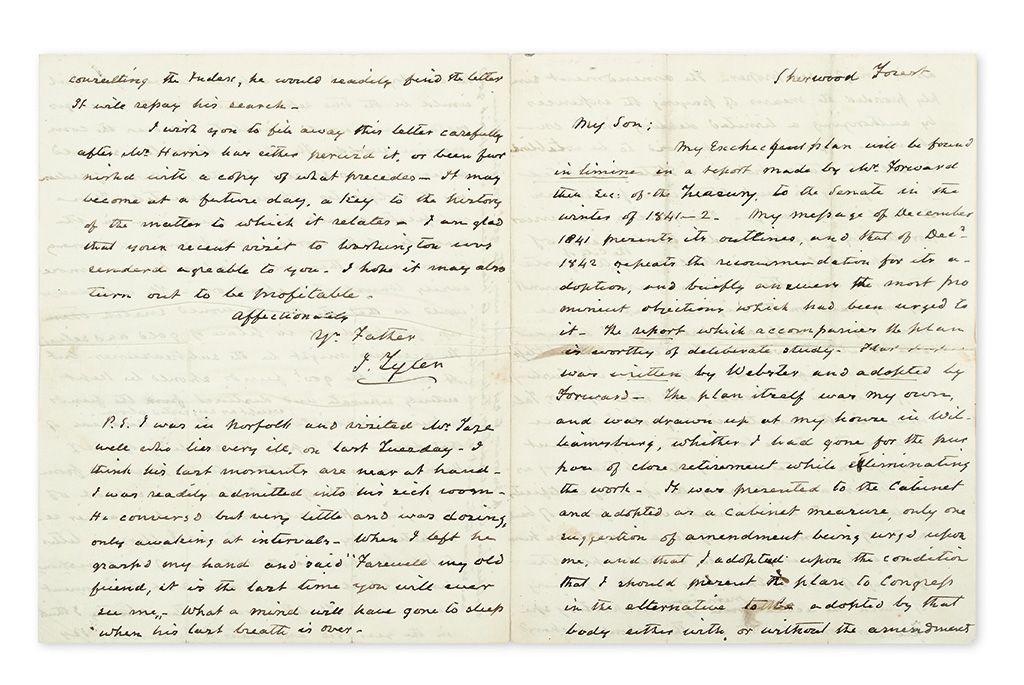 Sherwood Forest
My Son;
My Exchequer plan will be found
in limine in a report made by Mr. Forward
then Sec: of the Treasury, to the Senate in the
winter of 1841–2 – My message of December
1841 presents its outlines, and that of Decr.
1842 repeats the recommendation for its a-
doption, and briefly answers the most pro
minent objections which had been urged to
it – The report which accompanies the plan
is worthy of deliberate study –
was written by Webster and adopted by
Forward – The plan itself was my own,
and was drawn up at my house in Wil-
liamsburg, whither I had gone for the pur
pose of close retirement while eliminating
the work – It was presented to the Cabinet
and adopted as a Cabinet measure, only one
suggestion of amendment being urg'd upon
me, and that I adopted upon the condition
that I should present the plan to Congress
in the alternative to be adopted by that
body either with, or without the amendment
consulting the Index, he would readily find the letter
It will repay his search –
I wish you to file away this letter carefully
after Mr. Harris has either perus'd it, or been fur
nish'd with a copy of what precedes – It may
become at a future day, a key to the history
of the matter to which it relates – I am glad
that your recent visit to Washington was
render'd agreable to you – I hope it may also
turn out to be profitable –
Affectionately
Yr. Father
J. Tyler
P.S. I was in Norfolk and visited Mr. Taze
well who lies very ill, on last Tuesday – I
think his last moments are near at hand –
I was readily admitted into his sick room –
He convers'd but very little and was dozing,
only awaking at intervals – When I left he
grasp'd my hand and said "Farewell my old
friend, it is the last time you will ever
see me," What a mind will have gone to sleep
when his last breath is over –